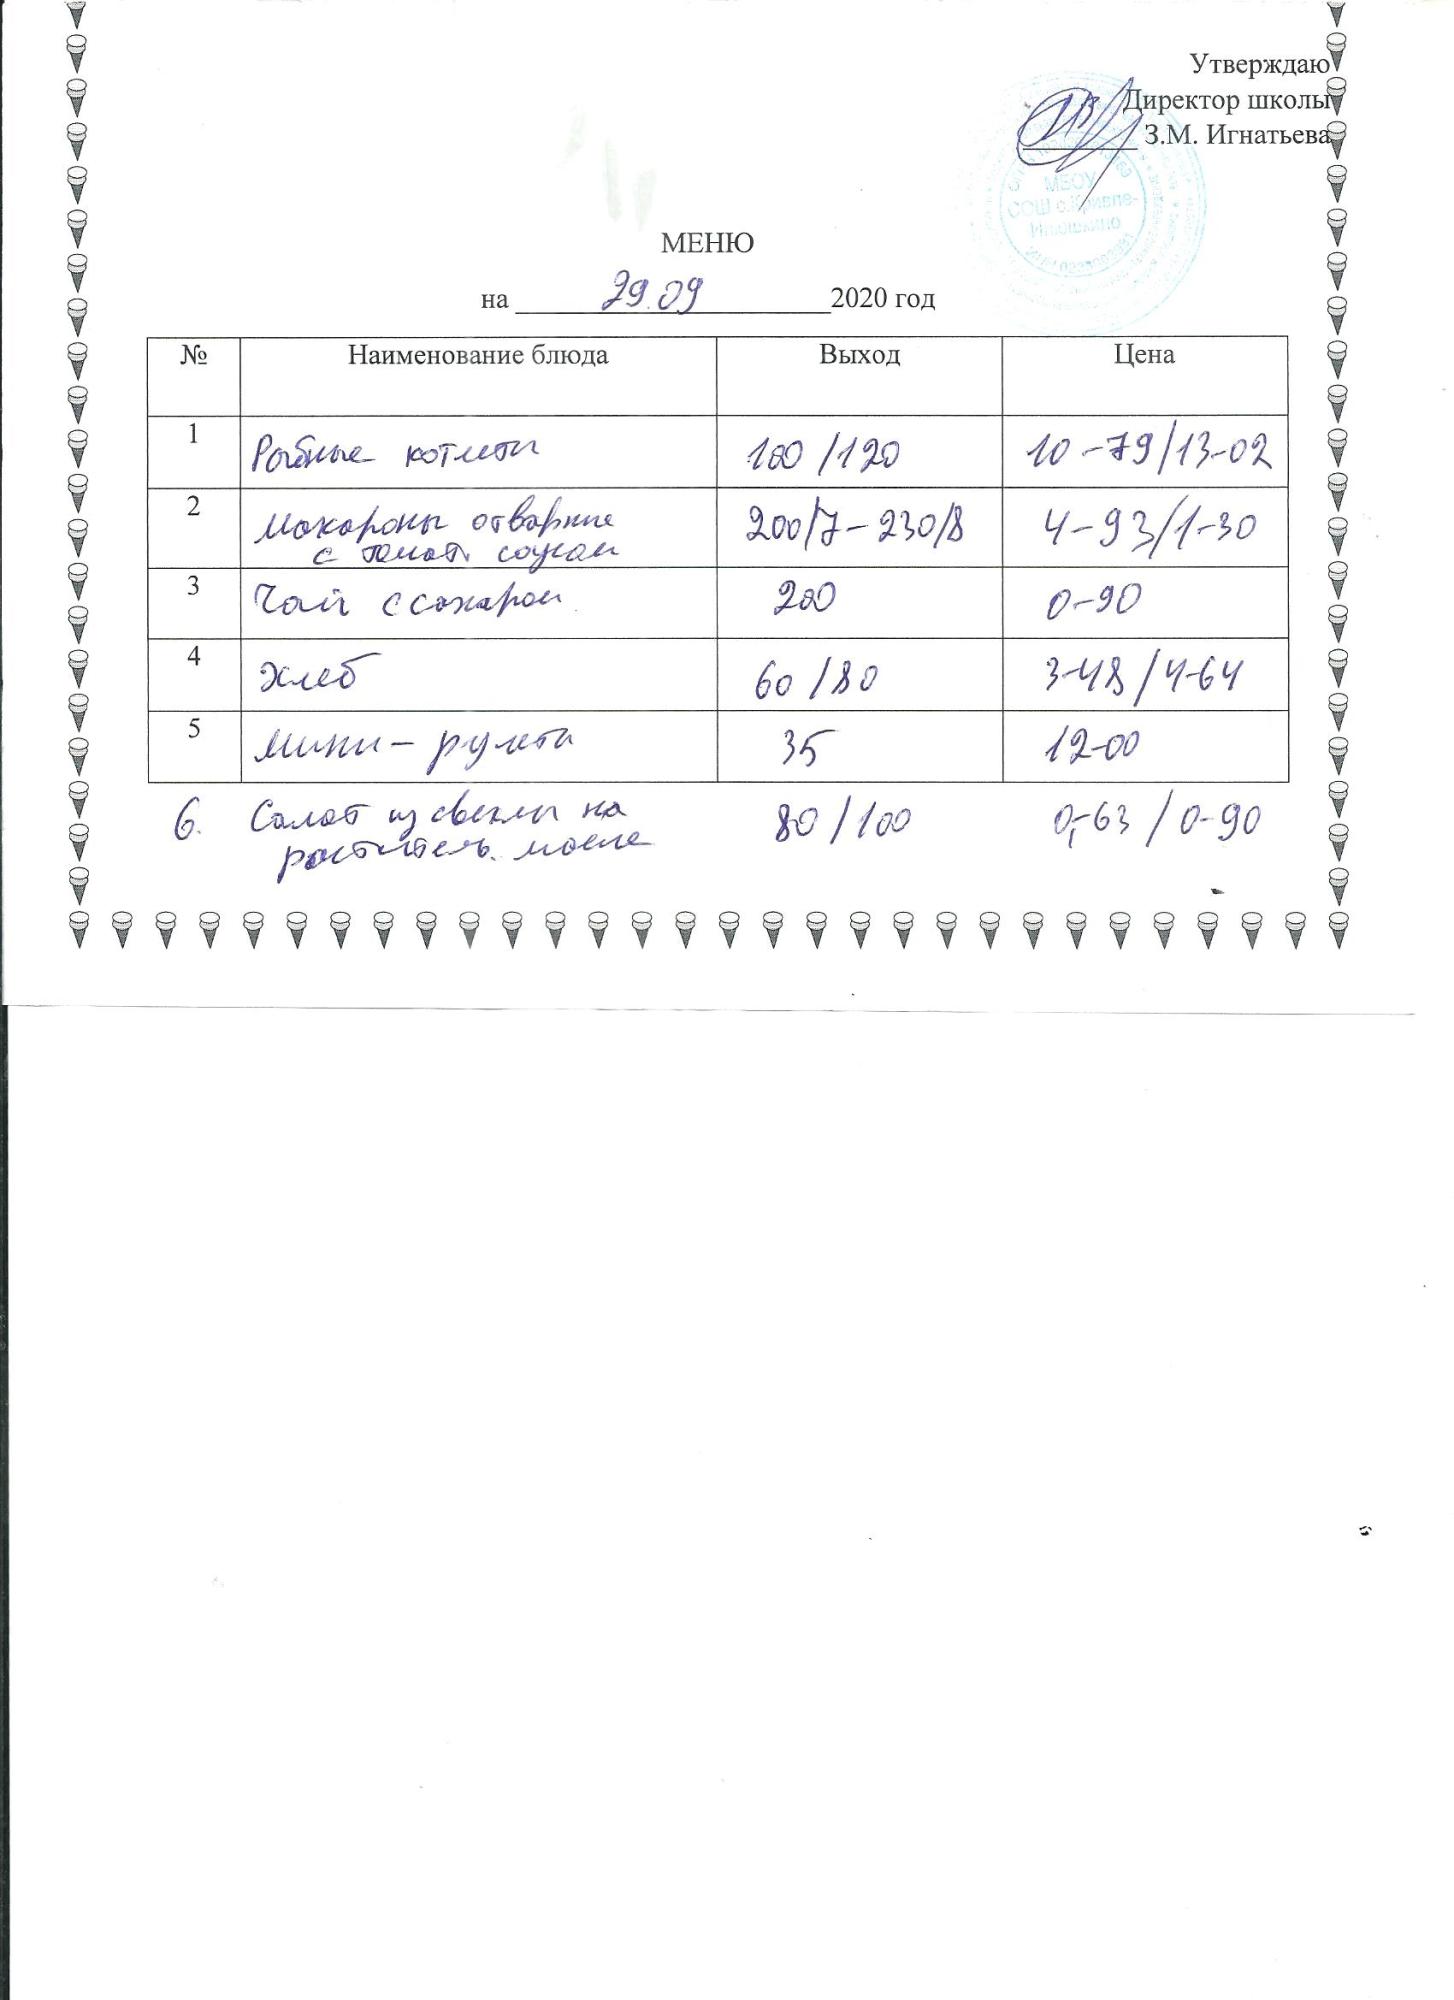 Утверждаю
Директор школы
З.М. Игнатьева
МБОУ
СОШ с.Кривле-
Илюшкино
МЕНЮ
на 29.09 2020 год
№ Наименование блюда Выход Цена
1 Рыбные котлеты 100/120 10-79/13-02
2 Макароны отварные 200/7-230/8 4-93/1-30
с томат. соусом
3 Чай с сахаром 200 0-90
4 Хлеб 60/80 3-48/4-64
5 Мини-рулеты 35 12-00
6. Салат из свеклы на 80/100 0,-63/0-90
раститель. масле